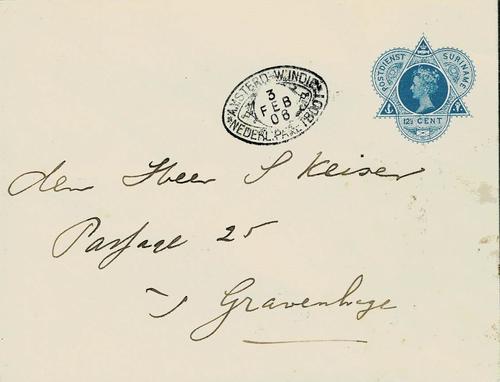 POSTDIENST SURINAME
12½ CENT
AMSTERD-W.INDIE
3
FEB
06
NEDERL.PAKETBOOT
den Heer S Keiser
Passage 25
's Gravenhage